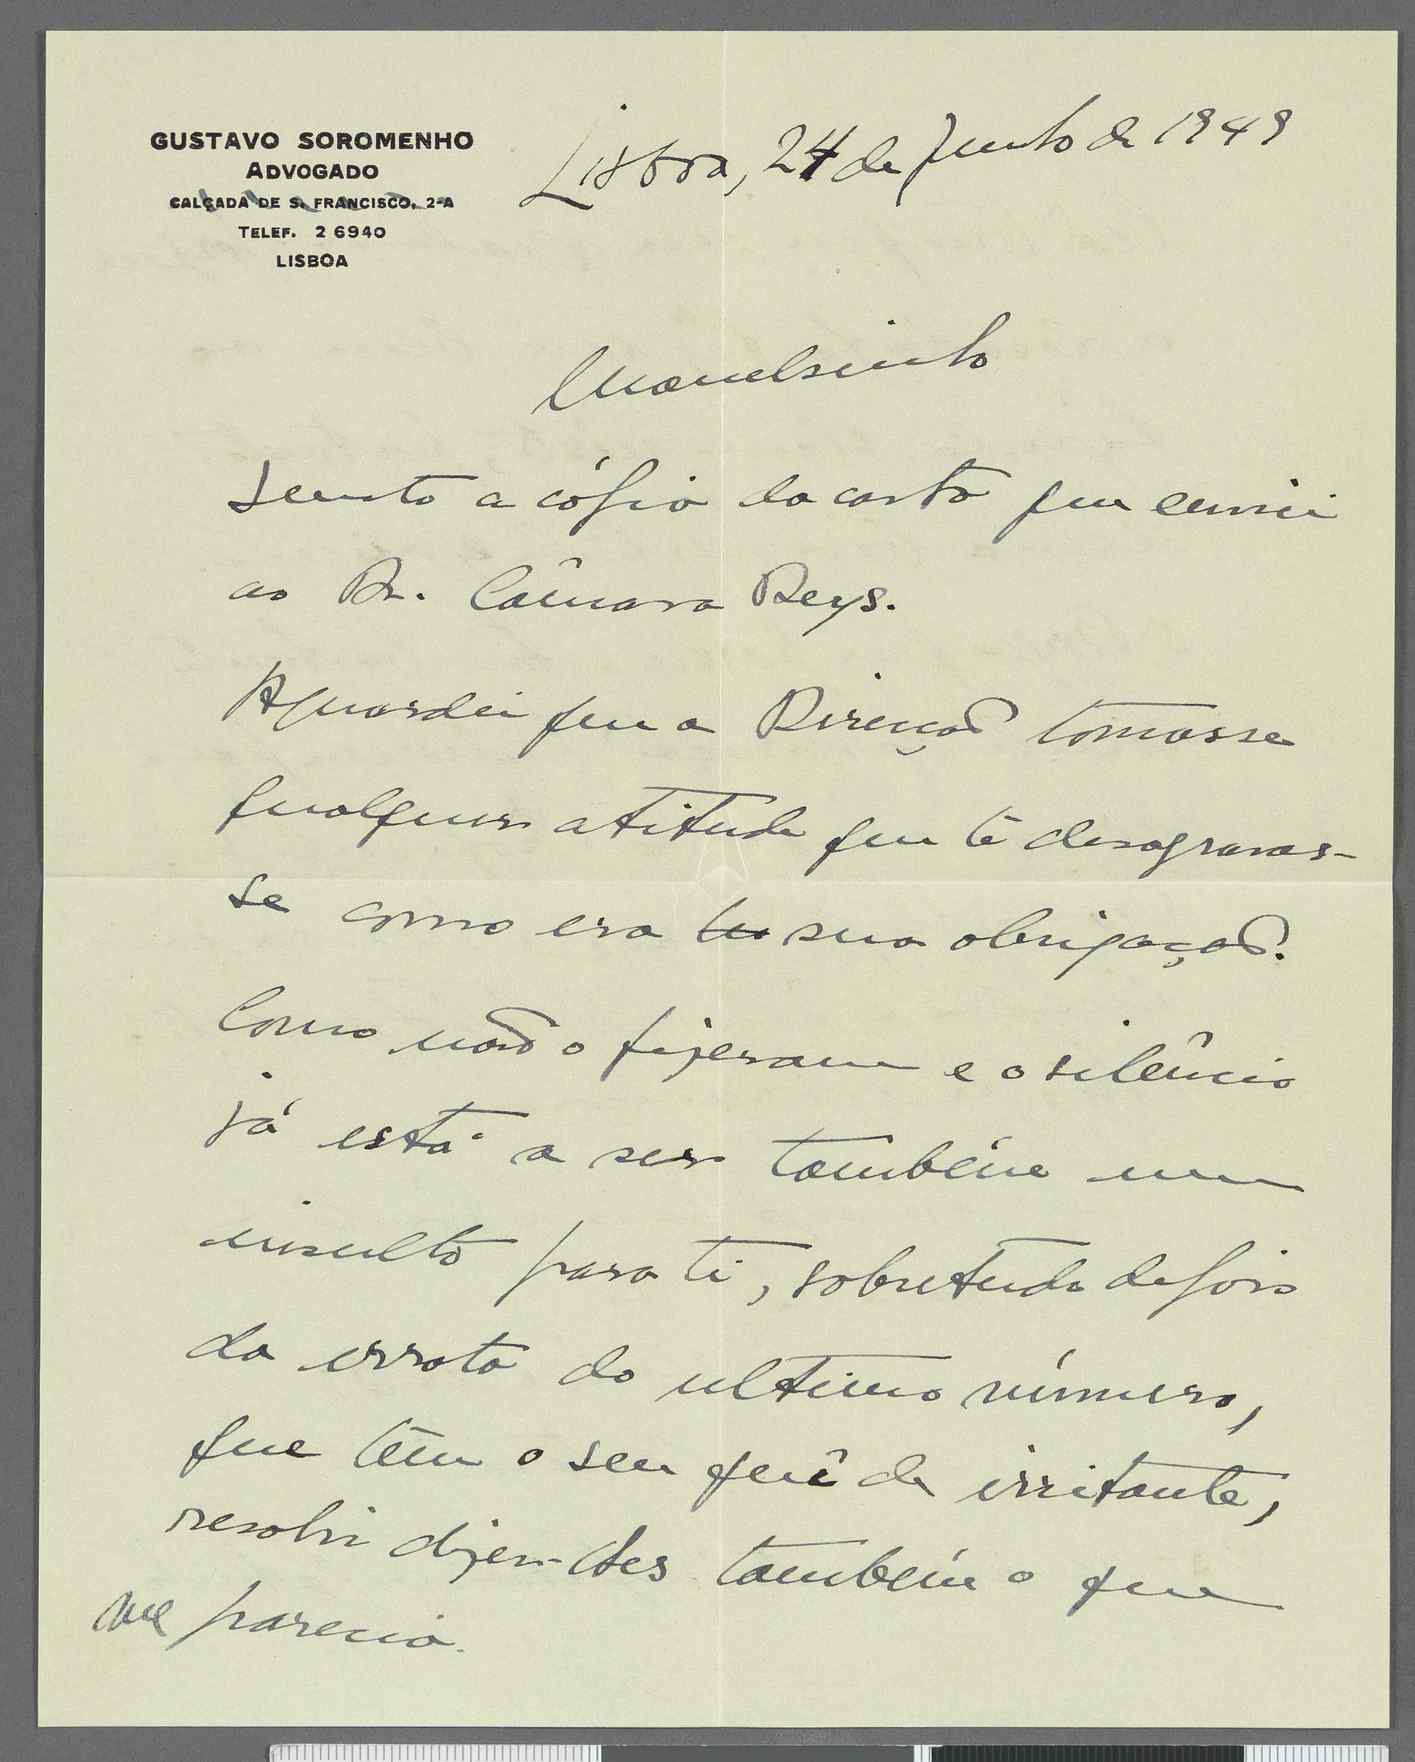 GUSTAVO SOROMENHO
ADVOGADO
CALÇADA DE S. FRANCISCO, 2-A
TELEF. 2 6940
LISBOA
Lisboa, 24 de Junho de 1949
Manelsinho
Junto a cópia da carta que enviei
ao Dr. Câmara Reys.
Aguardei que a Direcção tomasse
qualquer atitude que te desagravas-
se como era sua obrigação.
Como não o fizeram e o silêncio
já está a ser também um
insulto para ti, sobretudo depois
da errata do ultimo número,
que têm o seu quê de irritante,
resolvi dizer-lhes também o que
me parecia.